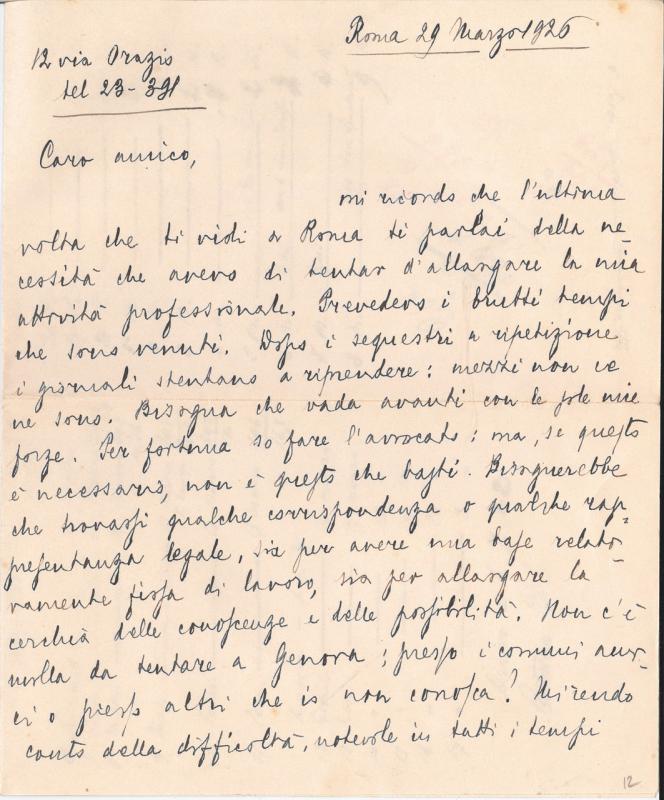 Roma 29 Marzo 1926
12 via Orazio
tel 23-391
Caro amico,
mi ricordo che l'ultima
volta che ti vidi a Roma ti parlai della ne-
cessità che avevo di tentar d'allargare la mia
attività professionale. Prevedevo i brutti tempi
che sono venuti. Dopo i sequestri a ripetizione
i giornali stentano a riprendere: mezzi non ce
ne sono. Bisogna che vada avanti con le sole mie
forze. Per fortuna so fare l'avvocato: ma, se questo
è necessario, non è questo che basti. Bisognerebbe
che trovassi qualche corrispondenza o qualche rap-
presentanza legale, sia per avere una base relati-
vamente fissa di lavoro, sia per allargare la
cerchia delle conoscenze e delle possibilità. Non c'è
nulla da tentare a Genova; presso i comuni ami-
ci o presso altri che io non conosca? Mi rendo
conto della difficoltà, notevole in tutti i tempi
12